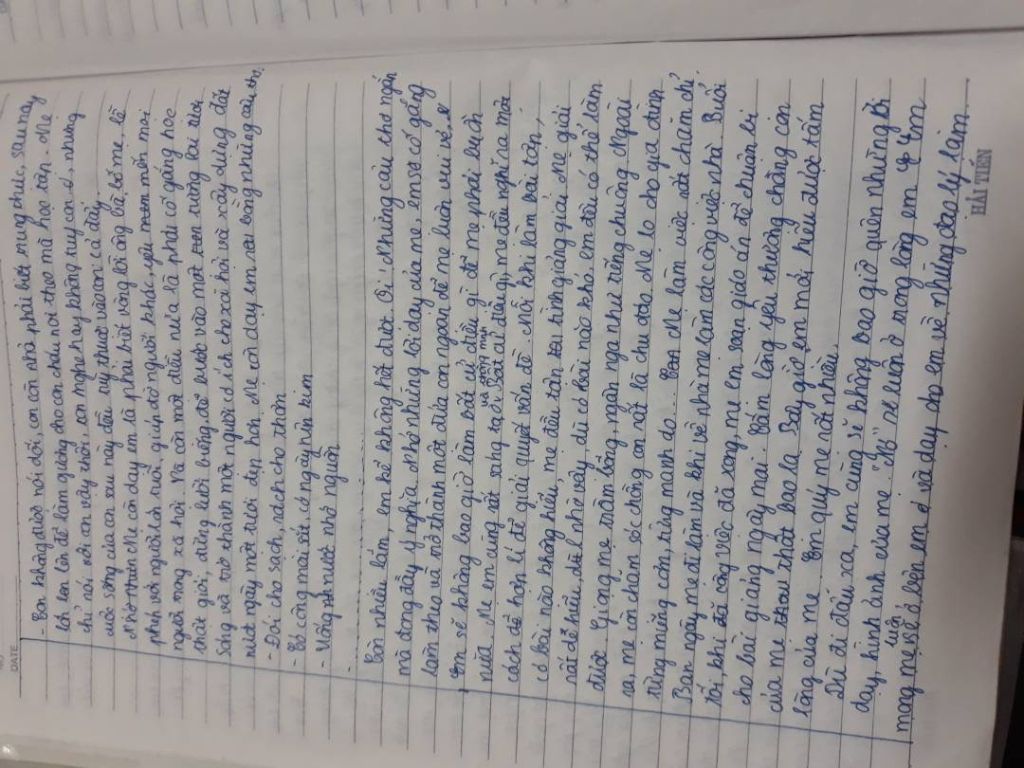 DATE
- Con không được nói dối, con cần phải biết trung thực, sau này
lớn lên còn để làm gương cho con cháu noi theo mà học tập. Mẹ
chỉ nói với con vậy thôi, con nghe hay không tùy con, nhưng
cuộc sống của con sau này đều tùy thuộc vào con cả đấy.
Mẹ còn dạy em là phải biết vâng lời ông bà bố mẹ, lễ
phép với người lớn tuổi, giúp đỡ người khác, yêu mến mọi
người trong xã hội. Và còn một điều nữa là phải cố gắng học
thật giỏi, đừng lười biếng để bước vào một tương lai tươi
sáng và trở thành một người có ích cho xã hội và xây dựng đất
nước ngày một tươi đẹp hơn. Mẹ còn dạy em sau bằng những câu thơ:
- Đói cho sạch, rách cho thơm
- Có công mài sắt, có ngày nên kim
- Uống nước nhớ nguồn
Còn nhiều lắm, em kể không hết được. Ôi! Những câu thơ ngắn
mà đọng đầy ý nghĩa. Nhớ những lời dạy của mẹ em sẽ cố gắng
làm theo và trở thành một đứa con ngoan để mẹ luôn vui vẻ
Em sẽ không bao giờ làm bất cứ điều gì để mẹ phải buồn
nữa. Mẹ em cũng rất sáng tạo và thông minh. Bất cứ điều gì, mẹ đều nghĩ ra mọi
cách để hợp lí để giải quyết vấn đề. Mỗi khi làm bài tập,
có bài nào không hiểu, mẹ đều tận tình giảng giải. Mẹ giải
rất dễ hiểu, nhờ vậy, dù có bài nào khó, em đều có thể làm
được. Giọng mẹ trầm bổng ngân nga như tiếng chuông. Ngoài
ra, mẹ còn chăm sóc chồng con rất là chu đáo. Mẹ lo cho gia đình
từng miếng cơm, từng manh áo... Mẹ làm việc rất chăm chỉ.
Ban ngày mẹ đi làm và khi về nhà mẹ làm các công việc nhà. Buổi
tối, khi đã công việc đã xong, mẹ em soạn giáo án để chuẩn bị
cho bài giảng ngày mai. Tấm lòng yêu thương chồng con
của mẹ thật bao la. Bây giờ em mới hiểu được tấm
lòng của mẹ. Em quý mẹ rất nhiều.
Dù đi đâu xa, em cũng sẽ không bao giờ quên những lời
dạy, hình ảnh của mẹ. "Mẹ" sẽ luôn ở trong lòng em. Em
mong mẹ luôn ở bên em và dạy cho em về những đạo lý làm
HẢI TIẾN